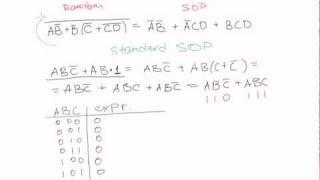 Random SOP
AB̅+B(C̅+C̅D̅) = A̅B̅ + A̅CD + BCD
Standard SOP
ABC̅ + AB·1 = ABC̅ + AB(C+C̅) =
= ABC̅ + ABC + ABC̅ = ABC̅ + ABC
110 111
ABC expr.
000 0
001 0
010 0
011 0
100 0
101 0